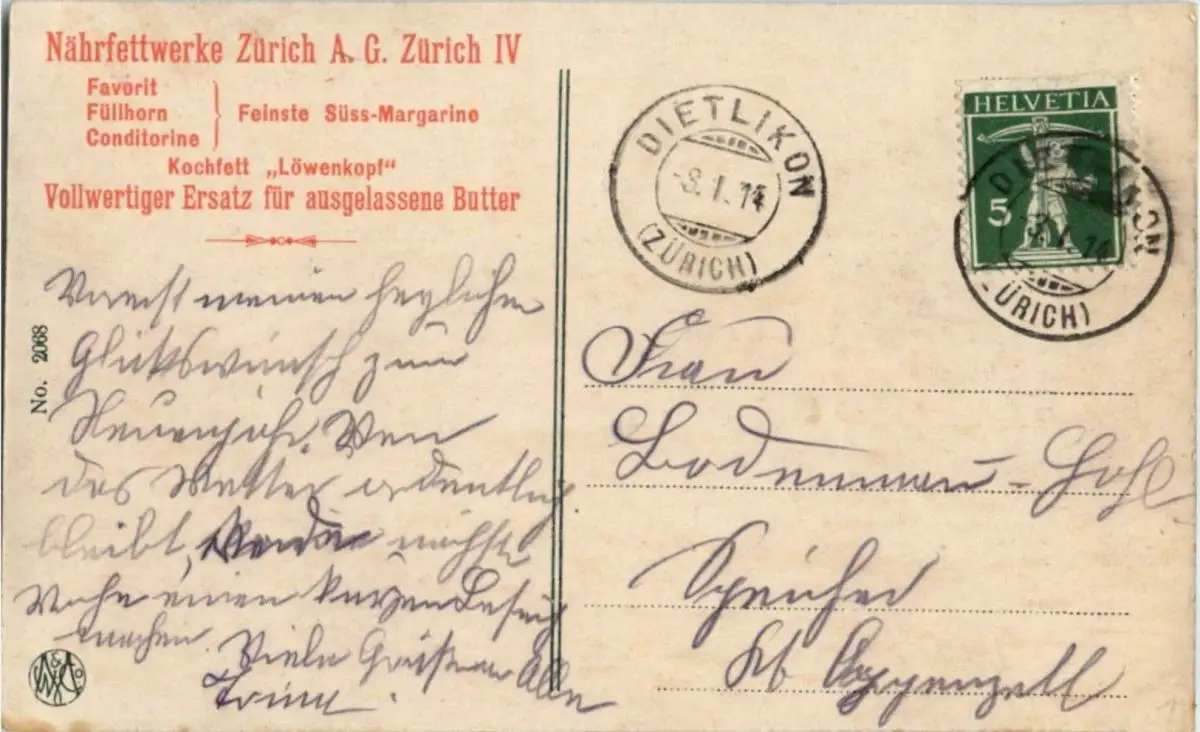 Nährfettwerke Zürich A. G. Zürich IV
Favorit
Füllhorn
Conditorine
Feinste Süss-Margarine
Kochfett „Löwenkopf“
Vollwertiger Ersatz für ausgelassene Butter
No. 2068
Vorerst meinen herzlichen
Glückswunsch zum
Neuenjahr. Wen
das Wetter ordentlich
bleibt, werde nächste
Woche einen kurzen Besuch
machen. Viele Grüsse an Alle
DIETLIKON
-8.I.14
(ZÜRICH)
HELVETIA
5
DIETLIKON
I.14
(ZÜRICH)
Frau
Speicher
Kt Appenzell